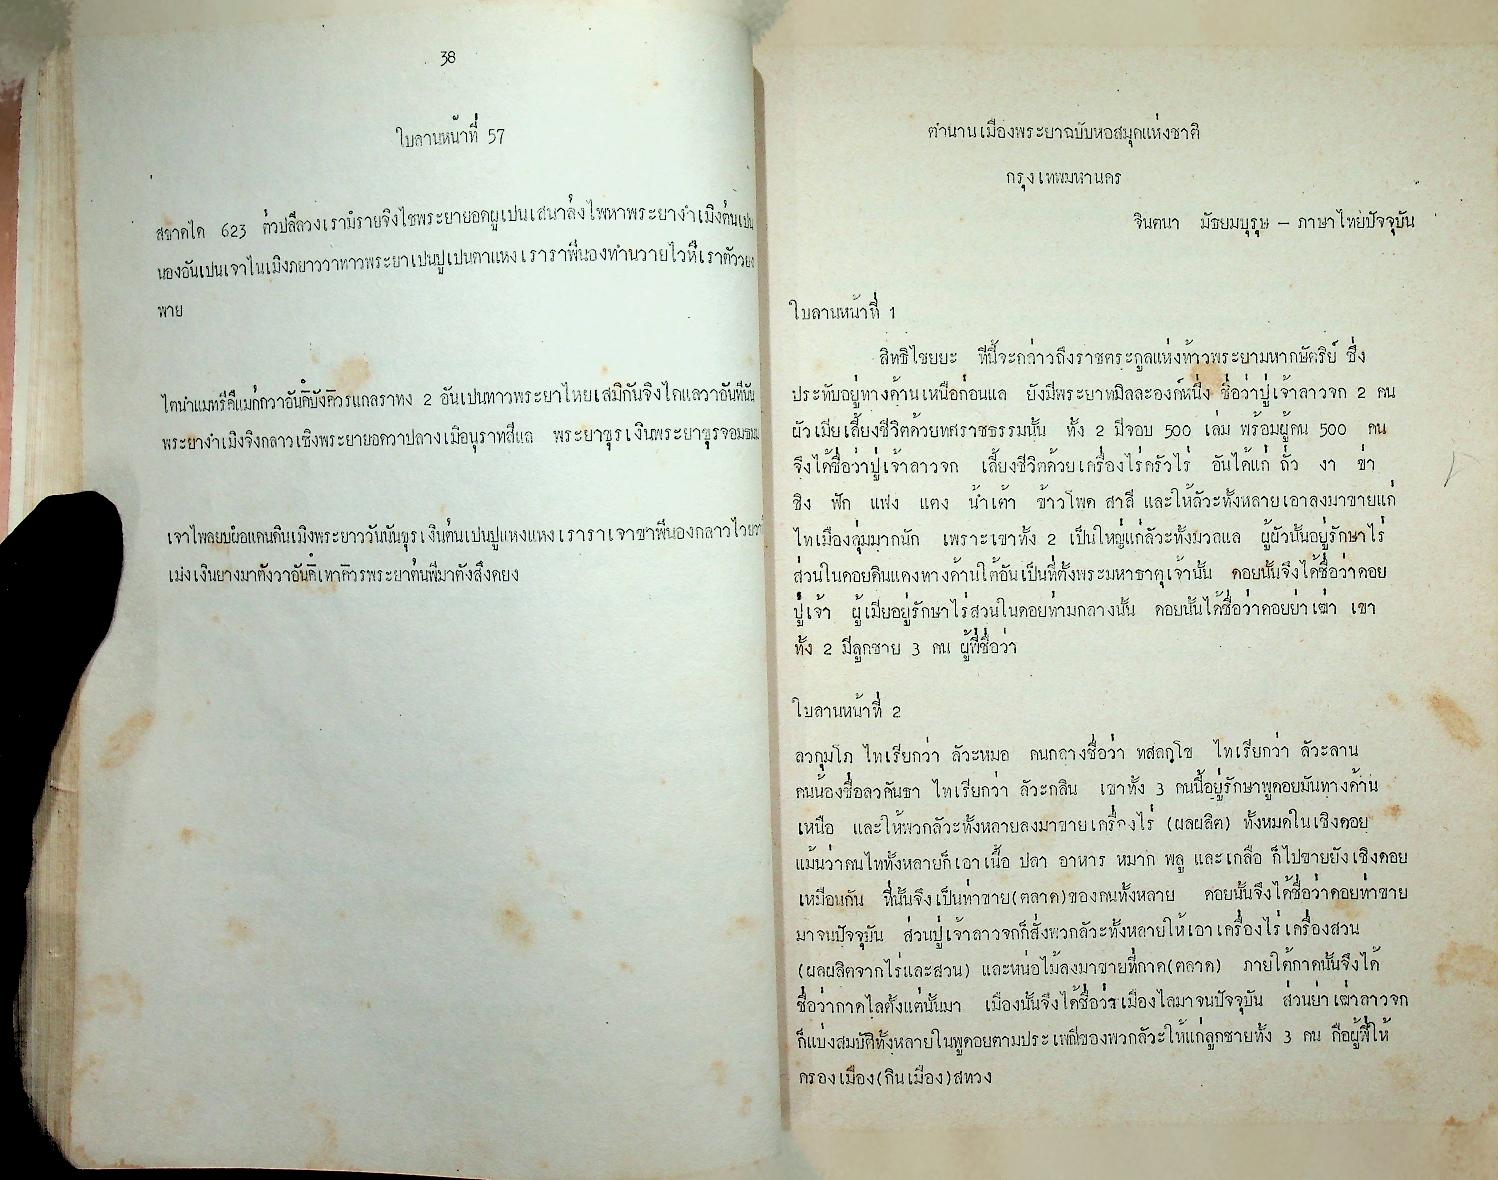 38
ใบลานหน้าที่ 57
สขาคไค 623 ตัวปลีลวงเรามํรายจิงไชพระยายอดผูเปนเสนาลังไพหาพระยางําเมิงต้นเปน
นองอันเปนเจาไนเมิงภยาววาทาวพระยาเปนปูเปนตาแหงเราราพีนองทํานวายไวหื้เราตัวว
พาย
ไดนําแมทรีคืแมก่กวาอันค็บังคิวรแกลราทง 2 อันเปนทาวพระยาไหยเสมิกันจิงไดแลวาอันทีนัน
พระยางําเมิงจิงกลาวเซิงพระยายอดวาปลางเมือนุราทสีแล พระยาขุรเงินพระยาขุรจอมธมม
เจาไพลยบผ่อแดนดินเมิงพระยาววันนันขุรเงินต้นเปนปูแหงแหงเราราเจาขาพีนองกลาวไว
เม่งเงินยางมาตังวาอันคิ์เทาคิวรพระยาต้นพีมาตังสิ่งดยง
ตํานานเมืองพระยาฉบับหอสมุดแห่งชาติ
กรุงเทพมหานคร
จินตนา มัธยมบุรุษ - ภาษาไทยปัจจุบัน
ใบลานหน้าที่ 1
สิทธิไชยยะ ทีนี้จะกล่าวถึงราชตระกูลแห่งท้าวพระยามหากษัตริย์ ซึ่ง
ประทับอยู่ทางด้านเหนือก่อนแล ยังมีพระยาทมิลละองค์หนึ่ง ชื่อว่าปู่เจ้าลาวจก 2 คน
ผัวเมียเลี้ยงชีวิตด้วยทศราชธรรมนั้น ทั้ง 2 มีจอบ 500 เล่ม พร้อมผู้คน 500 คน
จึงได้ชื่อว่าปู่เจ้าลาวจก เลี้ยงชีวิตด้วยเครื่องไร่ครัวไร่ อันได้แก่ ถั่ว งา ข่า
ขิง ฟัก แฟง แตง น้ำเต้า ข้าวโพด สาลี และให้ลัวะทั้งหลายเอาลงมาขายแก่
ไทเมืองลุ่มมากนัก เพราะเขาทั้ง 2 เป็นใหญ่แก่ลัวะทั้งมวลแล ผู้ผัวนั้นอยู่รักษาไร่
ส่วนในดอยดินแดงทางด้านใต้อันเป็นที่ตั้งพระมหาธาตุเจ้านั้น ดอยนั้นจึงได้ชื่อว่าดอย
ปู่เจ้า ผู้เมียอยู่รักษาไร่สวนในดอยท่ามกลางนั้น ดอยนั้นได้ชื่อว่าดอยย่าเฒ่า เขา
ทั้ง 2 มีลูกชาย 3 คน ผู้พี่ชื่อว่า
ใบลานหน้าที่ 2
ลวกุมโภ ไทเรียกว่า ลัวะหมอ คนกลางชื่อว่า ทสลกุโข ไทเรียกว่า ลัวะลาน
คนน้องชื่อลวคันธา ไทเรียกว่า ลัวะกลิน เขาทั้ง 3 คนนี้อยู่รักษาพูดอยมันทางด้าน
เหนือ และให้พวกลัวะทั้งหลายลงมาขายเครื่องไร่ (ผลผลิต) ทั้งหมดในเชิงดอย
แม้นว่าคนไททั้งหลายก็เอาเนื้อ ปลา อาหาร หมาก พลู และเกลือ ก็ไปขายยังเชิงดอย
เหมือนกัน ที่นั้นจึงเป็นท่าขาย(ตลาด)ของคนทั้งหลาย ดอยนั้นจึงได้ชื่อว่าดอยท่าขาย
มาจนปัจจุบัน ส่วนปู่เจ้าลาวจกก็สั่งพวกลัวะทั้งหลายให้เอาเครื่องไร่เครื่องสวน
(ผลผลิตจากไร่และสวน) และหน่อไม้ลงมาขายที่กาด(ตลาด) ภายใต้กาดนั้นจึงได้
ชื่อว่ากาดไลตั้งแต่นั้นมา เมืองนั้นจึงได้ชื่อว่าเมืองไลมาจนปัจจุบัน ส่วนย่าเฒ่าลาวจก
ก็แบ่งสมบัติทั้งหลายในพูดอยตามประเพณีของพวกลัวะให้แก่ลูกชายทั้ง 3 คน คือผู้พี่ให้
ครองเมือง(กินเมือง)สทวง